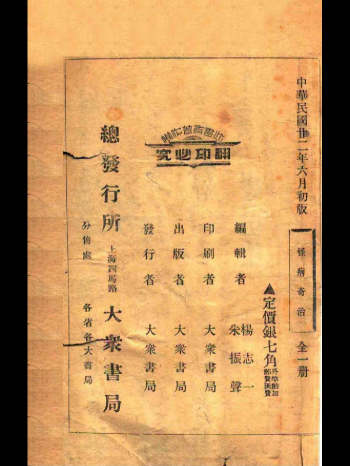 中華民國廿二年六月初版
怪病奇治
全一册
▲定價銀七角
外埠酌加
郵費匯費
編輯者 楊志一
朱振聲
印刷者 大衆書局
出版者 大衆書局
發行者 大衆書局
翻印必究
總發行所 上海四馬路 大衆書局
分售處 各省各大書局